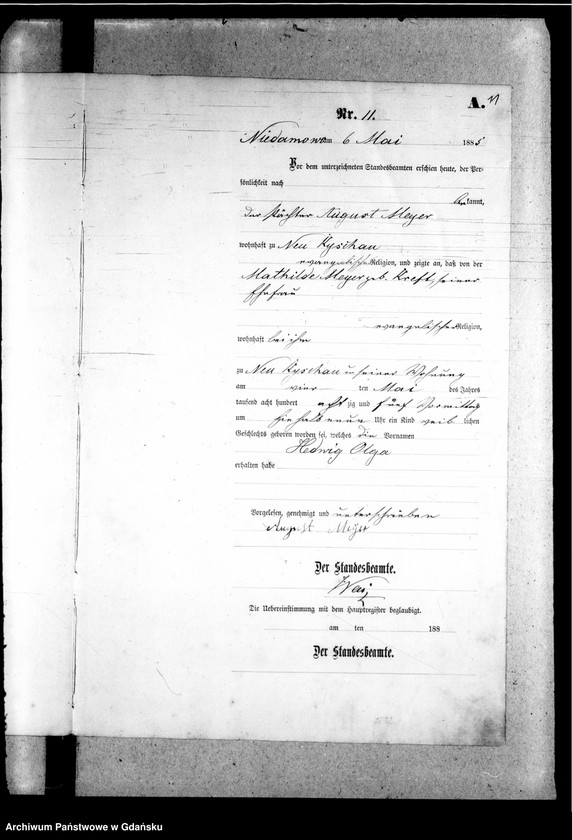 A. 11
Nr. 11.
Niedamowo am 6 Mai 1885
Vor dem unterzeichneten Standesbeamten erschien heute, der Per-
sönlichkeit nach
bekannt,
der Pächter August Meyer
wohnhaft zu Neu Kyschau
evangelischer Religion, und zeigte an, daß von der
Mathilde Meyer geb. Kreft, seiner
Ehefrau
evangelischer Religion,
wohnhaft bei ihm
zu Neu Kyschau in seiner Wohnung
am vier ten Mai des Jahres
tausend acht hundert achtzig und fünf Vormittag
um halb neun Uhr ein Kind weiblichen
Geschlechts geboren worden sei, welches die Vornamen
Hedwig Olga
erhalten habe
Vorgelesen, genehmigt und unterschrieben
August Meyer
Der Standesbeamte.
Die Uebereinstimmung mit dem Hauptregister beglaubigt.
am ten 188
Der Standesbeamte.
Archiwum Państwowe w Gdańsku